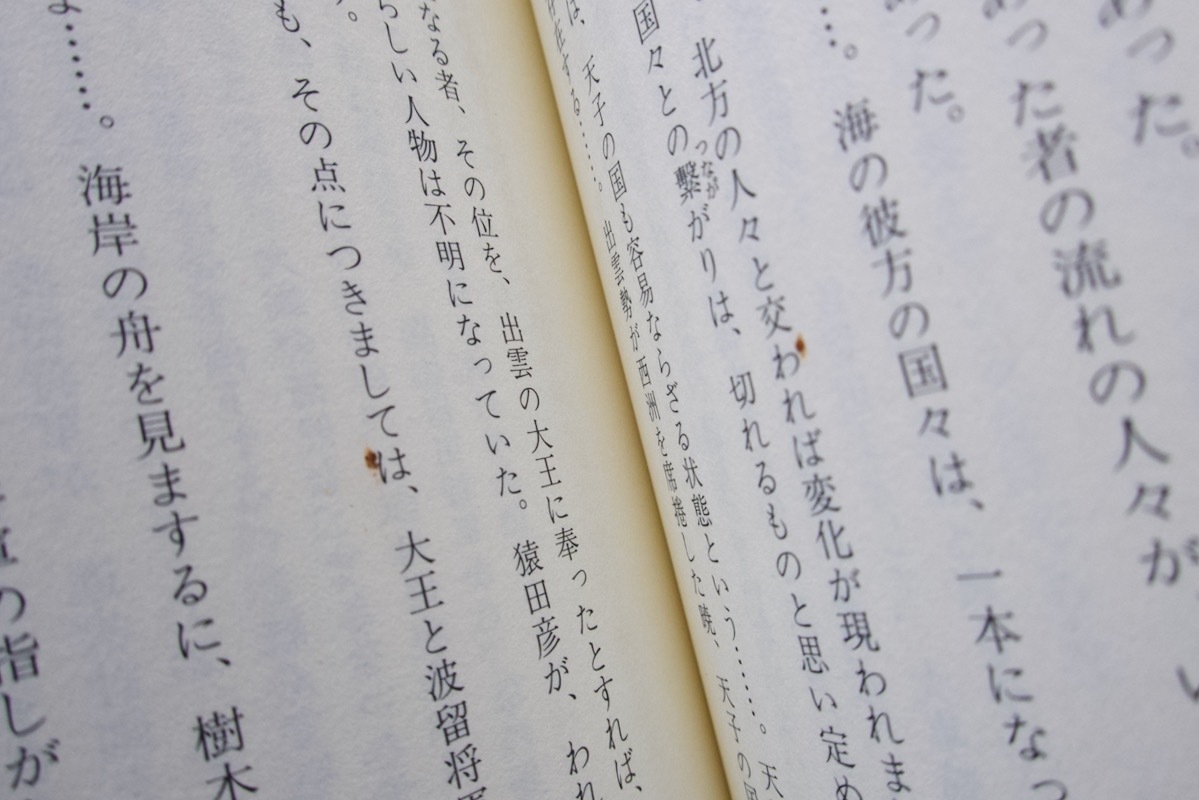 あった。
あった者の流れの人々が
った。
…。海の彼方の国々は、一本になっ
北方の人々と交われば変化が現われま
国々との繫がりは、切れるものと思い定め
つなが
は、天子の国も容易ならざる状態という……。天
在する……。出雲勢が西洲を席捲した暁、天子の国
なる者、その位を、出雲の大王に奉ったとすれば、
らしい人物は不明になっていた。猿田彦が、われ
す。
も、その点につきましては、大王と波留将軍
よ……。海岸の舟を見まするに、樹木
の指しが